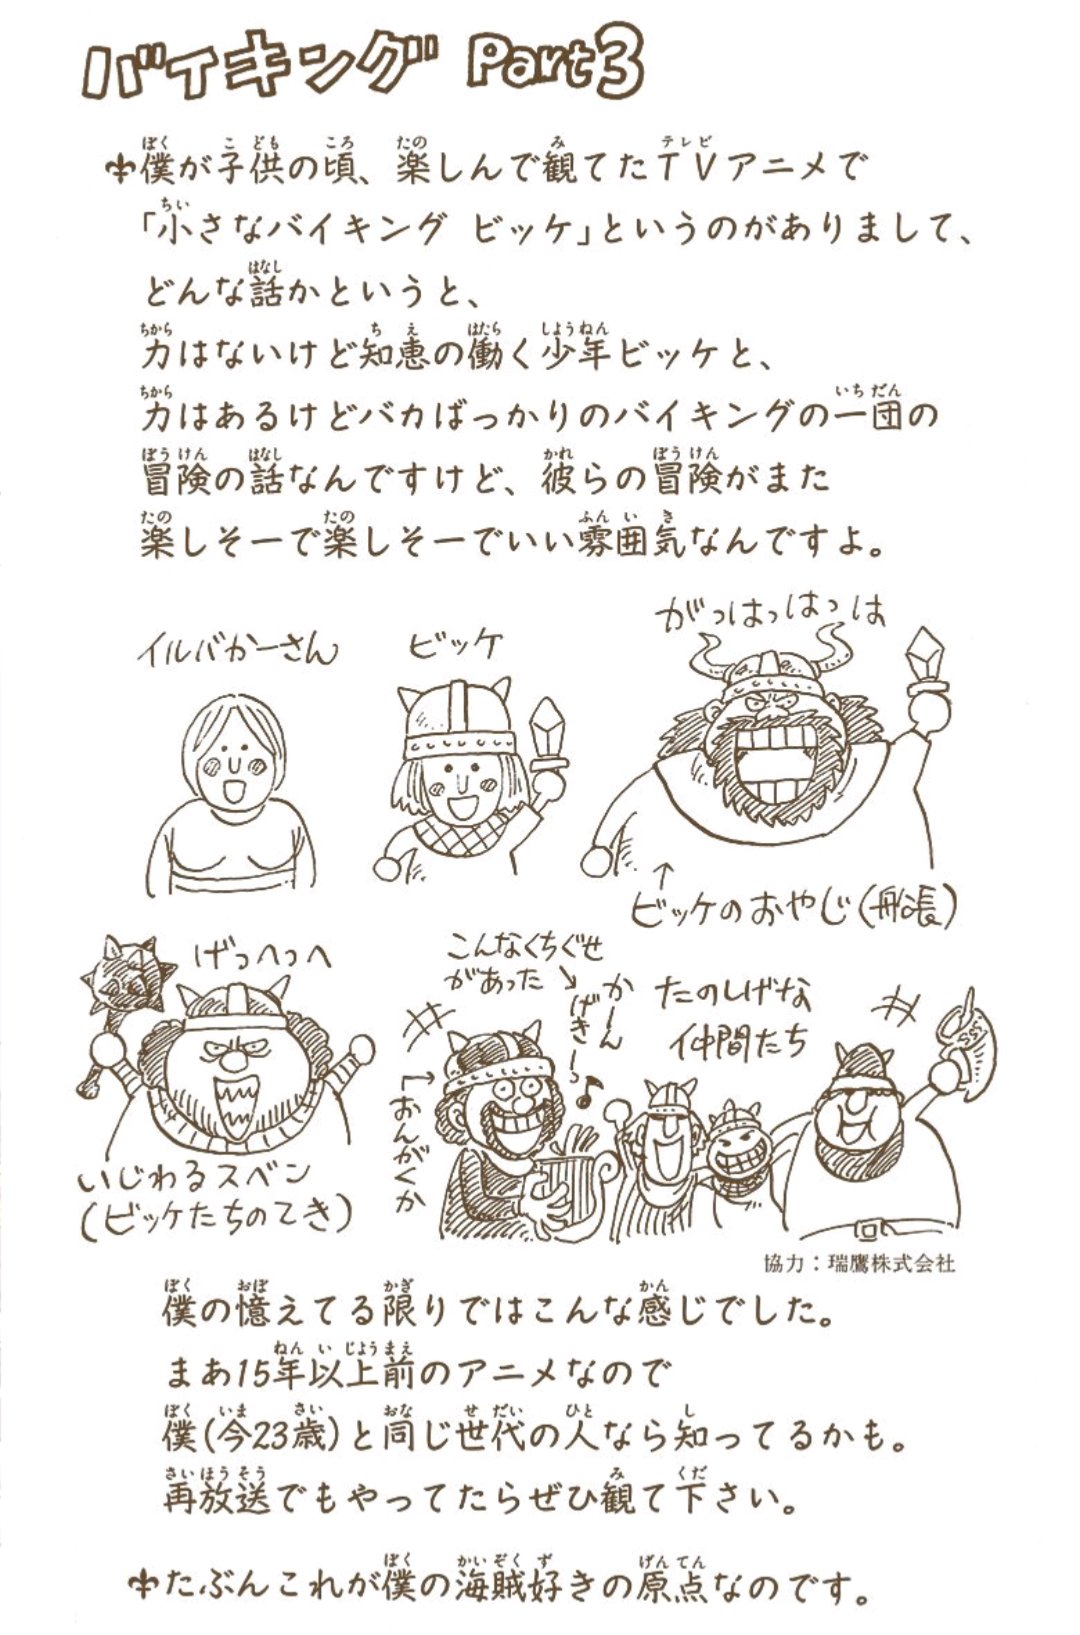 バイキング Part3
僕が子供の頃、楽しんで観てたTVアニメで
「小さなバイキング ビッケ」というのがありまして、
どんな話かというと、
力はないけど知恵の働く少年ビッケと、
力はあるけどバカばっかりのバイキングの一団の
冒険の話なんですけど、彼らの冒険がまた
楽しそーで楽しそーでいい雰囲気なんですよ。
イルバかーさん
ビッケ
がっはっはっは
↑
ビッケのおやじ(船長)
げっへっへ
いじわるスベン
(ビッケたちのてき)
こんなくちぐせ
があった↘
かーん
げきー♪
たのしげな
仲間たち
おんがくか
協力：瑞鷹株式会社
僕の憶えてる限りではこんな感じでした。
まあ15年以上前のアニメなので
僕(今23歳)と同じ世代の人なら知ってるかも。
再放送でもやってたらぜひ観て下さい。
たぶんこれが僕の海賊好きの原点なのです。